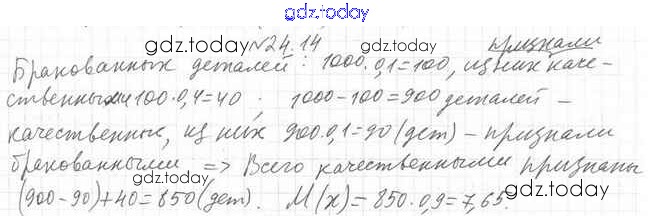 gdz.today
gdz.today №24.14 gdz.today признали
Бракованных деталей: 1000·0,1=100, из них каче-
ственными 100·0,4=40; 1000-100=900 деталей -
качественные, из них 900·0,1=90 (дет) - признали
бракованными => Всего качественными признаны
(900-90)+40=850 (дет). M(x)=850·0,9=7,65.
gdz.today gdz.today